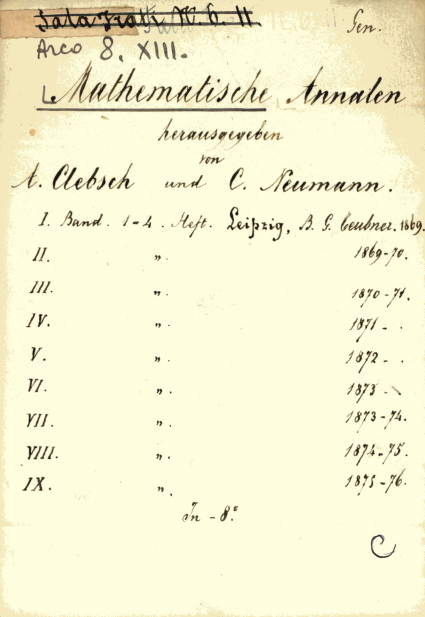 Sala Frati N. 6. 11
Gen.
Arco 8. XIII.
Mathematische Annalen
herausgegeben
von
A. Clebsch und C. Neumann.
I. Band. 1-4. Heft. Leipzig, B. G. Teubner. 1869.
II. „ 1869-70.
III. „ 1870-71.
IV. „ 1871-.
V. „ 1872-.
VI. „ 1873-
VII. „ 1873-74.
VIII. „ 1874-75.
IX. „ 1875-76.
In-8°
C